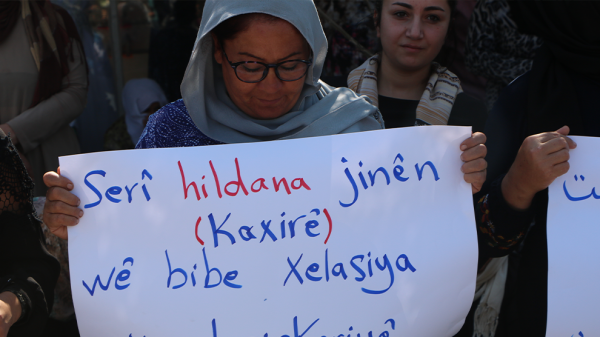 Serî hildana jinên
(Kaxirê)
wê bibe Xelasiya